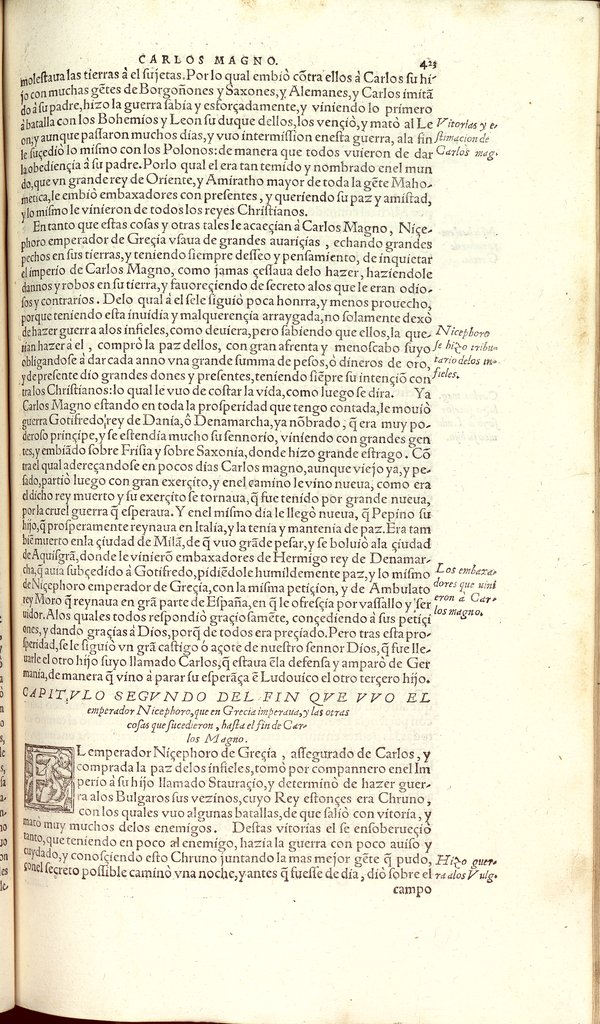 CARLOS MAGNO. 423
molestaua las tierras à el sujetas. Por lo qual embiò cõtra ellos à Carlos su hi-
jo con muchas gẽtes de Borgoñones y Saxones, y Alemanes, y Carlos imitã
do à su padre, hizo la guerra sabia y esforçadamente, y viniendo lo primero
à batalla con los Bohemios y Leon su duque dellos, los vençiò, y matò al Le
on, y aunque passaron muchos dias, y vuo intermission enesta guerra, ala fin
le suçediò lo mismo con los Polonos: de manera que todos vuieron de dar
la obediençia à su padre. Porlo qual el era tan temido y nombrado enel mun
do, que vn grande rey de Oriente, y Amiratho mayor de toda la gẽte Maho-
metica, le embiò embaxadores con presentes, y queriendo su paz y amistad,
y lo mismo le vinieron de todos los reyes Christianos.
Vitorias y e-
stimacion de
Carlos mag.
En tanto que estas cosas y otras tales le acaeçian à Carlos Magno, Niçe-
phoro emperador de Greçia vsaua de grandes auariçias, echando grandes
pechos en sus tierras, y teniendo siempre desseo y pensamiento, de inquietar
el imperio de Carlos Magno, como jamas çessaua delo hazer, haziendole
dannos y robos en su tierra, y fauoreçiendo de secreto alos que le eran odio-
sos y contrarios. Delo qual à el sele siguiò poca honrra, y menos prouecho,
porque teniendo esta inuidia y malquerençia arraygada, no solamente dexò
de hazer guerra alos infieles, como deuiera, pero sabiendo que ellos, la que-
rian hazer à el, comprò la paz dellos, con gran afrenta y menoscabo suyo
obligandose à dar cada anno vna grande summa de pesos, ò dineros de oro,
y de presente dio grandes dones y presentes, teniendo siẽpre su intençiõ con
tra los Christianos: lo qual le vuo de costar la vida, como luego se dira. Ya
Nicephoro
se hizo tribu-
tario delos in-
fieles.
Carlos Magno estando en toda la prosperidad que tengo contada, le mouiò
guerra Gotifredo, rey de Dania, ô Denamarcha, ya nõbrado, q̃ era muy po-
deroso prinçipe, y se estendia mucho su sennorio, viniendo con grandes gen
tes, y embiãdo sobre Frisia y sobre Saxonia, donde hizo grande estrago. Cõ
tra el qual adereçandose en pocos dias Carlos magno, aunque viejo ya, y pe-
sado, partiò luego con gran exerçito, y enel camino le vino nueua, como era
el dicho rey muerto y su exerçito se tornaua, q̃ fue tenido por grande nueua,
por la cruel guerra q̃ esperaua. Y enel mismo dia le llegò nueua, q̃ Pepino su
hijo, q̃ prosperamente reynaua en Italia, y la tenia y mantenia de paz. Era tam
biẽ muerto enla çiudad de Milã, de q̃ vuo grãde pesar, y se boluiò ala çiudad
de Aquisgrã, donde le vinierõ embaxadores de Hermigo rey de Denamar-
cha, q̃ auia subçedido à Gotifredo, pidiẽdole humildemente paz, y lo mismo
de Niçephoro emperador de Greçia, con la misma petiçion, y de Ambulato
rey Moro q̃ reynaua en grã parte de España, en q̃ le ofresçia por vassallo y ser
uidor. Alos quales todos respondiò graçiosamẽte, conçediendo à sus petiçi
ones, y dando graçias à Dios, porq̃ de todos era preçiado. Pero tras esta pro-
speridad, se le siguiò vn grã castigo ò açote de nuestro sennor Dios, q̃ fue lle-
uarle el otro hijo suyo llamado Carlos, q̃ estaua ẽla defensa y amparo de Ger
mania, de manera q̃ vino à parar su esperãça ẽ Ludouico el otro terçero hijo.
Los embaxa-
dores que vini
eron à Car-
los magno.
CAPITVLO SEGVNDO DEL FIN QVE VVO EL
emperador Nicephoro, que en Grecia imperaua, y las otras
cosas que sucedieron, hasta el fin de Car-
los Magno.
EL emperador Niçephoro de Greçia, assegurado de Carlos, y
comprada la paz delos infieles, tomò por compannero enel Im
perio à su hijo llamado Stauraçio, y determinò de hazer guer-
ra alos Bulgaros sus vezinos, cuyo Rey estonçes era Chruno,
con los quales vuo algunas batallas, de que saliò con vitoria, y
matò muy muchos delos enemigos. Destas vitorias el se ensoberueçiò
tanto, que teniendo en poco al enemigo, hazia la guerra con poco auiso y
cuydado, y conosçiendo esto Chruno juntando la mas mejor gẽte q̃ pudo,
conel secreto possible caminò vna noche, y antes q̃ fuesse de dia, diò sobre el
Hizo guer-
ra alos Vulg.
campo